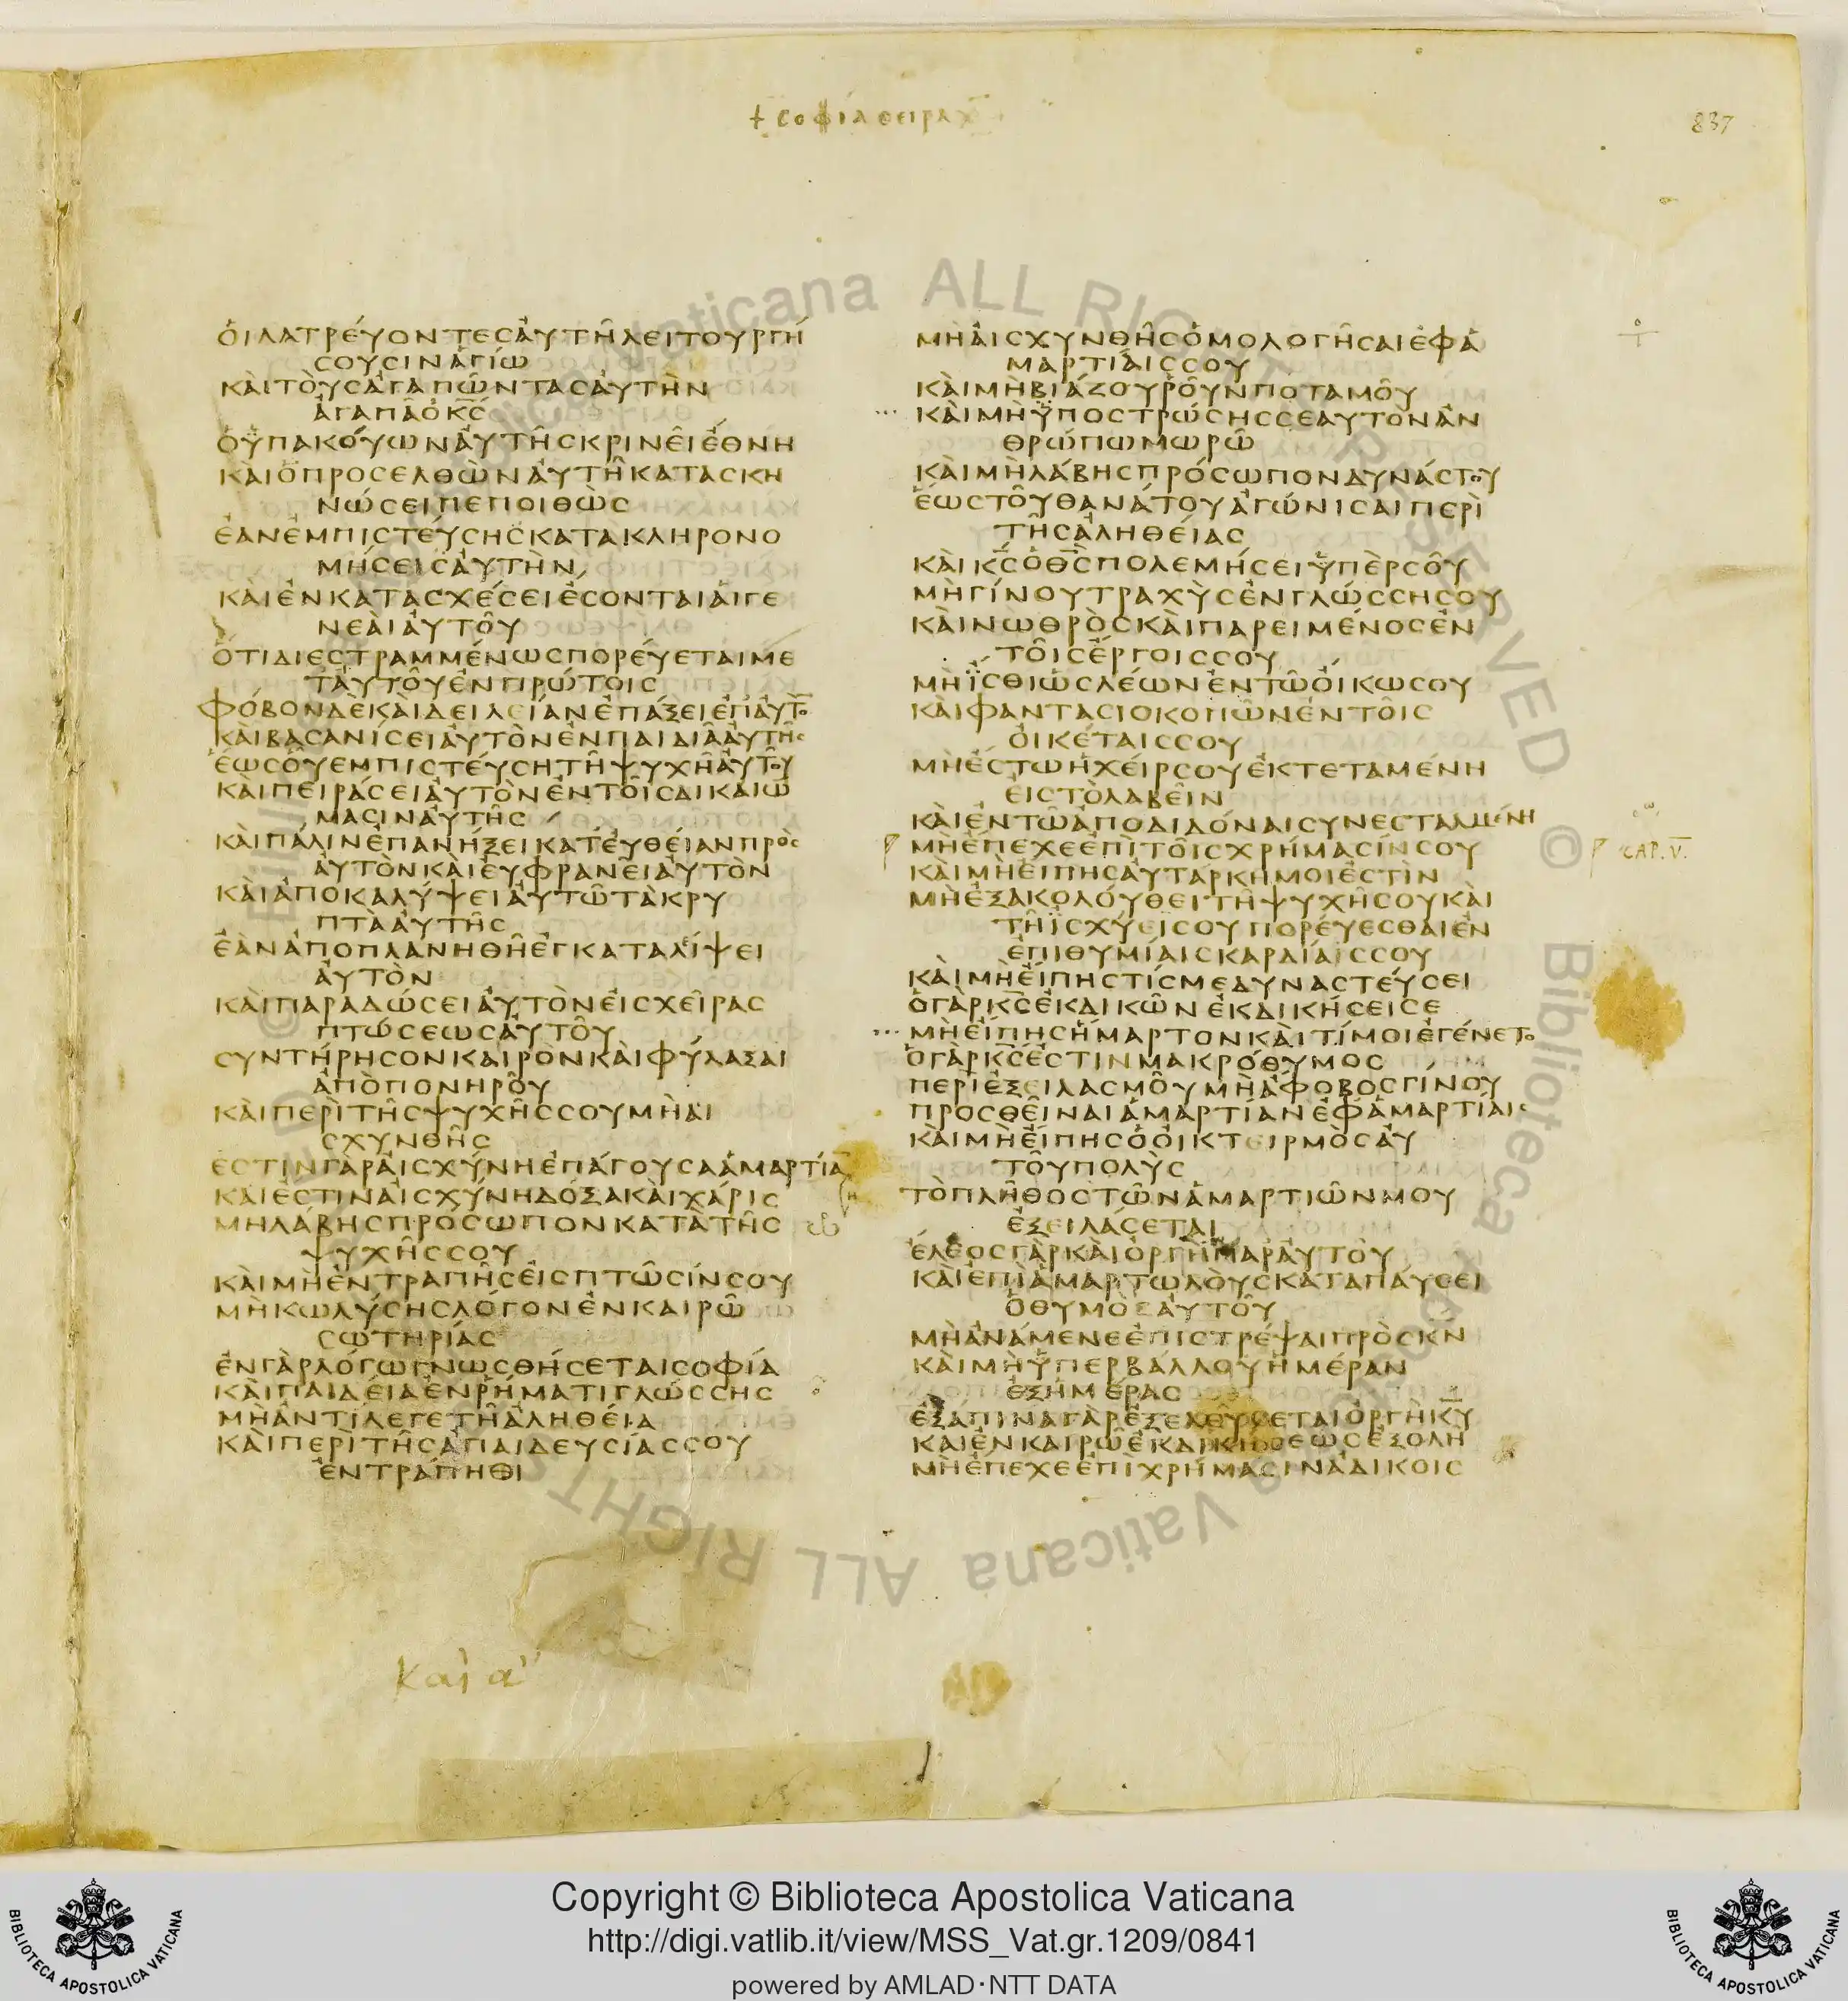 + ϲοφίαϲειραχ
837
ὁιλατρέυοντεϲἀυτῆλειτουργή
ϲουϲινἁγίω
κὰιτὸυϲἀγαπῶνταϲἀυτὴν
ἀγαπᾶὁκ̅ϲ̅
ὁὑπακόυωνἀυτῆϲκρινεῖἔθνη
κὰιὁπροϲελθὼνἀυτῆκαταϲκη
νώϲειπεποιθὼϲ
ἐανἐμπιϲτέυϲηϲκατακληρονο
μήϲειϲἀυτὴν
κὰιἐνκαταϲχέϲειἔϲονταιἁιγε
νεὰιἀυτοῦ
ὅτιδιεϲτραμμένωϲπορέυεταιμε
τἀυτοῦἐνπρώτοιϲ
φόβονδὲκὰιδειλείανἐπάξειἐπἀυτὸ
κὰιβαϲανίϲειἀυτὸνἐνπαιδιᾶἀυτῆϲ
ἕωϲοῦεμπιϲτέυϲητῆψυχῆἀυτοῦ
κὰιπειράϲειἀυτὸνἐντοῖϲδικαιώ
μαϲινἀυτῆϲ
κὰιπάλινἐπανήξεικατἐυθεῖανπρὸϲ
ἀυτὸνκὰιἐυφρανεῖἀυτὸν
κὰιἀποκαλύψειἀυτῶτὰκρυ
πτὰἀυτῆϲ
ἐὰνἀποπλανηθῆἐγκαταλείψει
ἀυτὸν
κὰιπαραδώϲειἀυτὸνἐιϲχεῖραϲ
πτώϲεωϲἀυτοῦ
ϲυντήρηϲονκαιρὸνκὰιφύλαξαι
ἀπὸπονηροῦ
κὰιπερὶτῆϲψυχῆϲϲουμὴαι
ϲχυνθῆϲ
ἐϲτινγὰρἀιϲχύνηἐπάγουϲαἁμαρτία̅
κὰιἐϲτινἀιϲχύνηδόξακὰιχάριϲ
μὴλάβηϲπρόϲωπονκατὰτῆϲ
ψυχῆϲϲου
κὰιμὴἐντραπῆϲἐιϲπτῶϲίνϲου
μὴκωλύϲηϲλόγονἐνκαιρῶ
ϲωτηρίαϲ
ἐνγὰρλόγωγνωϲθήϲεταιϲοφία
κὰιπαιδείαἐνῥήματιγλώϲϲηϲ
μὴἀντίλεγετῆἀληθεία
κὰιπερὶτῆϲἀπαιδευϲίαϲϲου
ἐντράπηθι
μὴἀιϲχυνθῆϲὁμολογῆϲαιἐφἁ
μαρτίαιϲϲου
κὰιμὴβιάζουροῦνποταμοῦ
κὰιμὴὑποϲτρώϲηϲϲεαυτὸνἀν
θρώπωμωρῶ
κὰιμὴλάβηϲπρόϲωπονδυνάϲτου
ἕωϲτοῦθανάτουἀγώνιϲαιπερὶ
τῆϲἀληθείαϲ
κὰικ̅ϲ̅ὁθ̅ϲ̅πολεμήϲειὑπὲρϲοῦ
μὴγίνουτραχὺϲἐνγλώϲϲηϲου
κὰινωθρὸϲκὰιπαρειμένοϲἐν
τοῖϲἔργοιϲϲου
μὴἴϲθιὡϲλέωνἐντῶὄικωϲου
κὰιφανταϲιοκοπῶνἐντοῖϲ
ὀικέταιϲϲου
μὴἔϲτωἡχείρϲουἐκτεταμένη
ἐιϲτὸλαβεῖν
κὰιἐντῶἀποδιδόναιϲυνεϲταλμένη
CAP. V.
μὴἔπεχεἐπὶτοῖϲχρήμαϲίνϲου
κὰιμὴἔιπηϲἀυτάρκημοιἐϲτὶν
μὴἐξακολόυθειτῆψυχῆϲουκὰι
τῆἰϲχύειϲουπορέυεϲθαιἐν
ἐπιθυμίαιϲκαρδίαϲϲου
κὰιμὴἔιπηϲτίϲμεδυναϲτέυϲει
ὁγὰρκ̅ϲ̅ἐκδικῶνἐκδικήϲειϲε
μὴἔιπηϲἥμαρτονκὰιτίμοιἐγένετο
ὁγὰρκ̅ϲ̅ἐϲτινμακρόθυμοϲ
περὶἐξειλαϲμοῦμὴἄφοβοϲγίνου
προϲθεῖναιἁμαρτίανἐφἁμαρτίαιϲ
κὰιμὴἔιπηϲὁὀικτειρμὸϲἀυ
τοῦπολὺϲ
τὸπλῆθοϲτῶνἁμαρτιῶνμου
ἐξειλάϲεται
ἔλεοϲγὰρκὰιὀργὴπαρἀυτοῦ
κὰιἐπὶἁμαρτωλὸυϲκαταπάυϲει
ὁθυμὸϲἀυτοῦ
μὴἀνάμενεἐπιϲτρέψαιπρὸϲκ̅ν̅
κὰιμὴὑπερβάλλουἡμέραν
ἐξἡμέραϲ
ἐξάπιναγὰρἐξελεύϲεταιὀργὴκ̅υ̅
κὰιἐνκαιρῶἐκδικήϲεωϲἐξολῆ
μὴἔπεχεἐπὶχρήμαϲινἀδίκοιϲ
καὶ α
Copyright © Biblioteca Apostolica Vaticana
http://digi.vatlib.it/view/MSS_Vat.gr.1209/0841
powered by AMLAD·NTT DATA
BIBLIOTECA APOSTOLICA VATICANA
BIBLIOTECA APOSTOLICA VATICANA